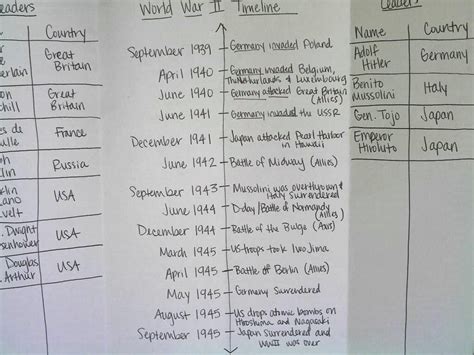 Leaders
Country
Great
Britain
Great
Britain
France
Russia
USA
USA
USA
World War II Timeline
September 1939 Germany invaded Poland
April 1940 Germany invaded Belgium,
The Netherlands & Luxembourg
June 1940 Germany attacked Great Britain
(Allies)
June 1941 Germany invaded the USSR
December 1941 Japan attacked Pearl Harbor
in Hawaii
June 1942 Battle of Midway (Allies)
September 1943 Mussolini was overthrown &
Italy surrendered
June 1944 D-day/Battle of Normandy
(Allies)
December 1944 Battle of the Bulge (Axis)
March 1945 US troops took Iwo Jima
April 1945 Battle of Berlin (Allies)
May 1945 Germany Surrendered
August 1945 US drops atomic bombs on
Hiroshima and Nagasaki
September 1945 Japan Surrendered and
WWII was over
Leaders
Name Country
Adolf
Hitler Germany
Benito
Mussolini Italy
Gen. Tojo Japan
Emperor
Hirohito Japan